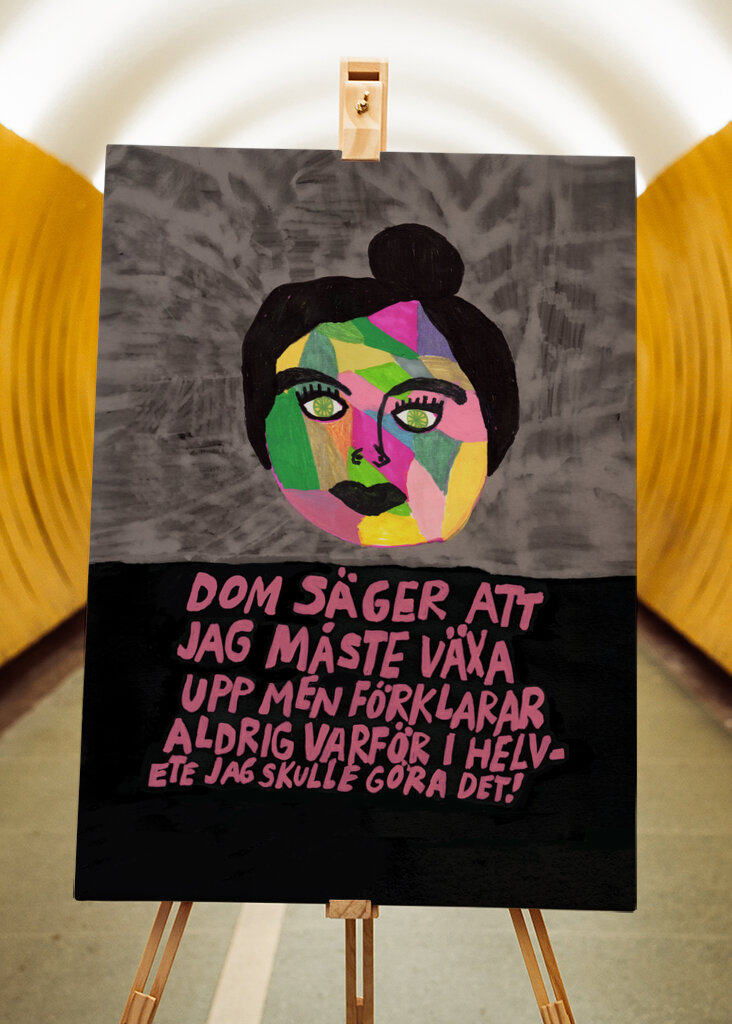 DOM SÄGER ATT
JAG MÅSTE VÄXA
UPP MEN FÖRKLARAR
ALDRIG VARFÖR I HELV-
ETE JAG SKULLE GÖRA DET!